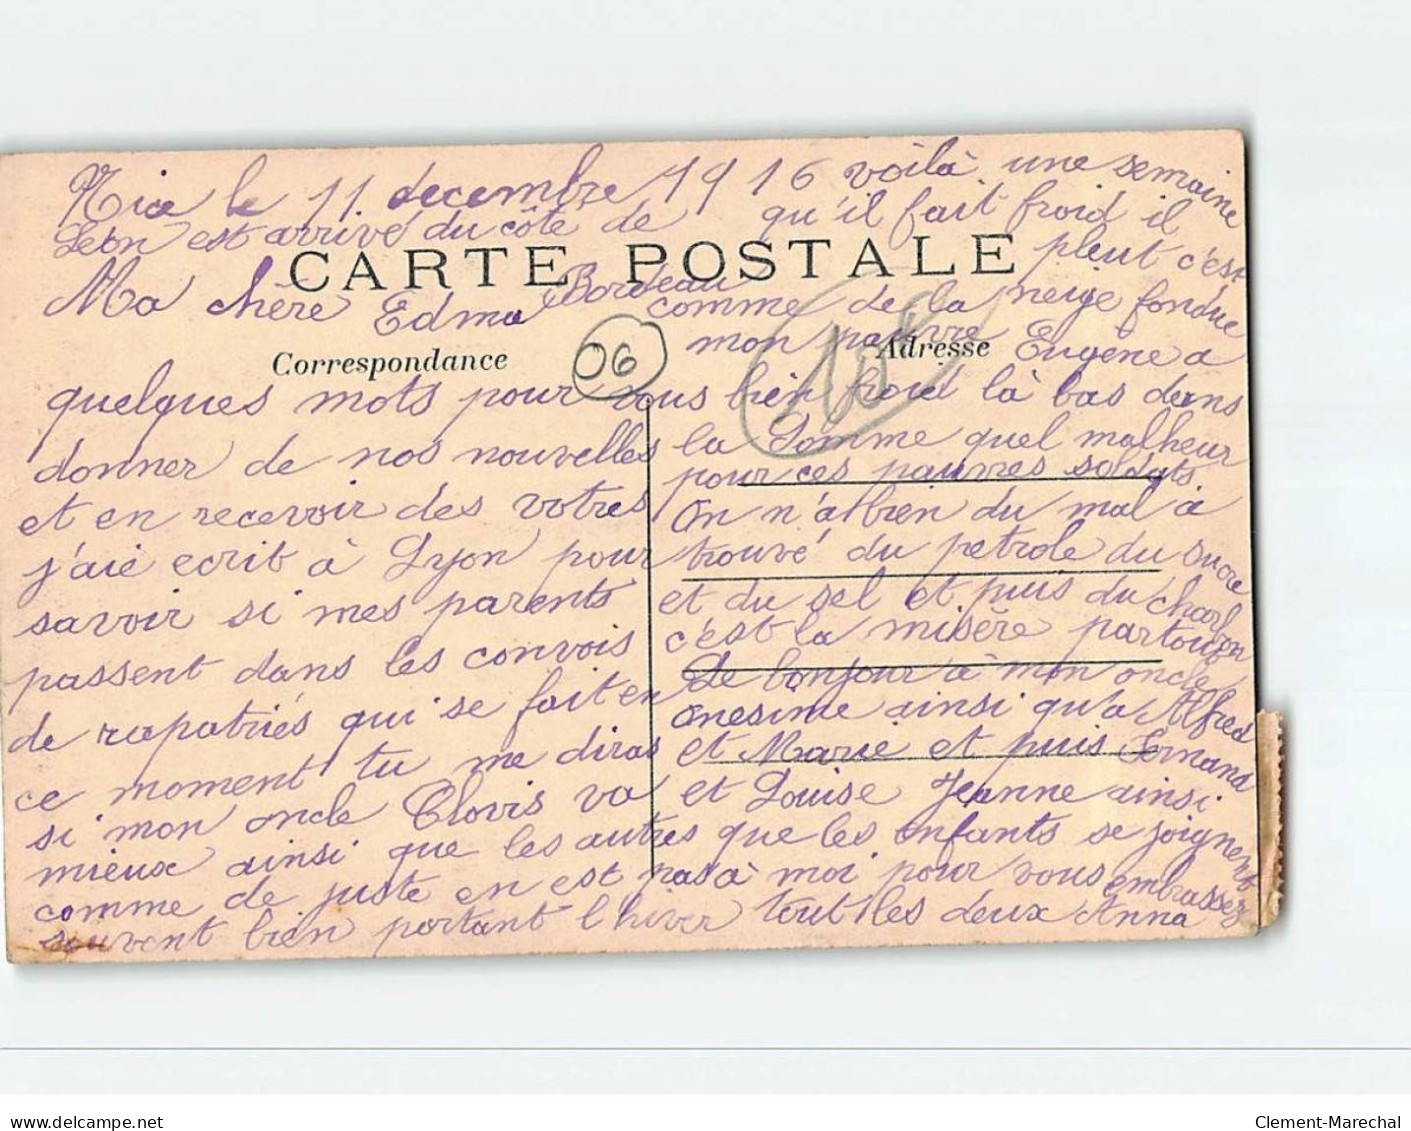 Nice le 11 decembre 1916
Leon est arrivé du côte de
Bordeau
CARTE POSTALE
Ma chère Edma
Correspondance
06
quelques mots pour vous
donner de nos nouvelles
et en recevoir des votres
j'aie ecrit à Lyon pour
savoir si mes parents
passent dans les convois
de rapatriés qui se fait en
ce moment tu me diras
si mon oncle Clovis va
mieux ainsi que les autres
comme de juste en est pas
souvent bien portant l'hiver
voilà une semaine
qu'il fait froid il
pleut c'est
comme de la neige fondue
mon pauvre Eugène a
Adresse
bien froid là bas dans
la Somme quel malheur
pour ces pauvres soldats
On n'a bien du mal à
trouvé du petrole du sucre
et du sel et puis du charbon
c'est la misère partout
Le bonjour à mon oncle
Onesime ainsi qu'a Alfred
et Marie et puis Fernand
et Louise Jeanne ainsi
que les enfants se joignent
à moi pour vous embrassez
tout les deux Anna
delcampe.net
Clement-Marechal